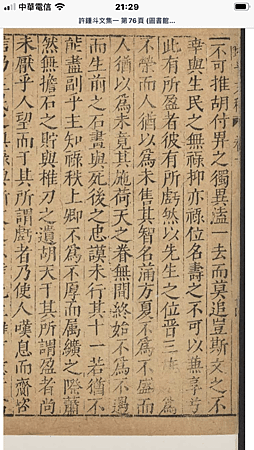 中華電信 21:29
許鍾斗文集一 第76頁 (圖書館...
一不可推胡付畀之獨異溘一去而莫追豈斯文之不
幸與生民之無祿抑亦祿位名壽之不可以兼享乎
此有所盈者彼有所虧然以先生之位晉三為
不榮而人猶以為未售其智名滿方夏不為不盛而
人猶以為未竟其施荷天之眷無間終始不為不遇
而生前之石畫與死後之忠謨未行其十一若猶不
能盡副乎主知祿秩上卿不為不厚而属纊之際蕭
然無擔石之貯與椎刀之遺胡天于其所謂盈者尚
未厭乎人望而于其所謂虧者乃使人嘆息而齎咨